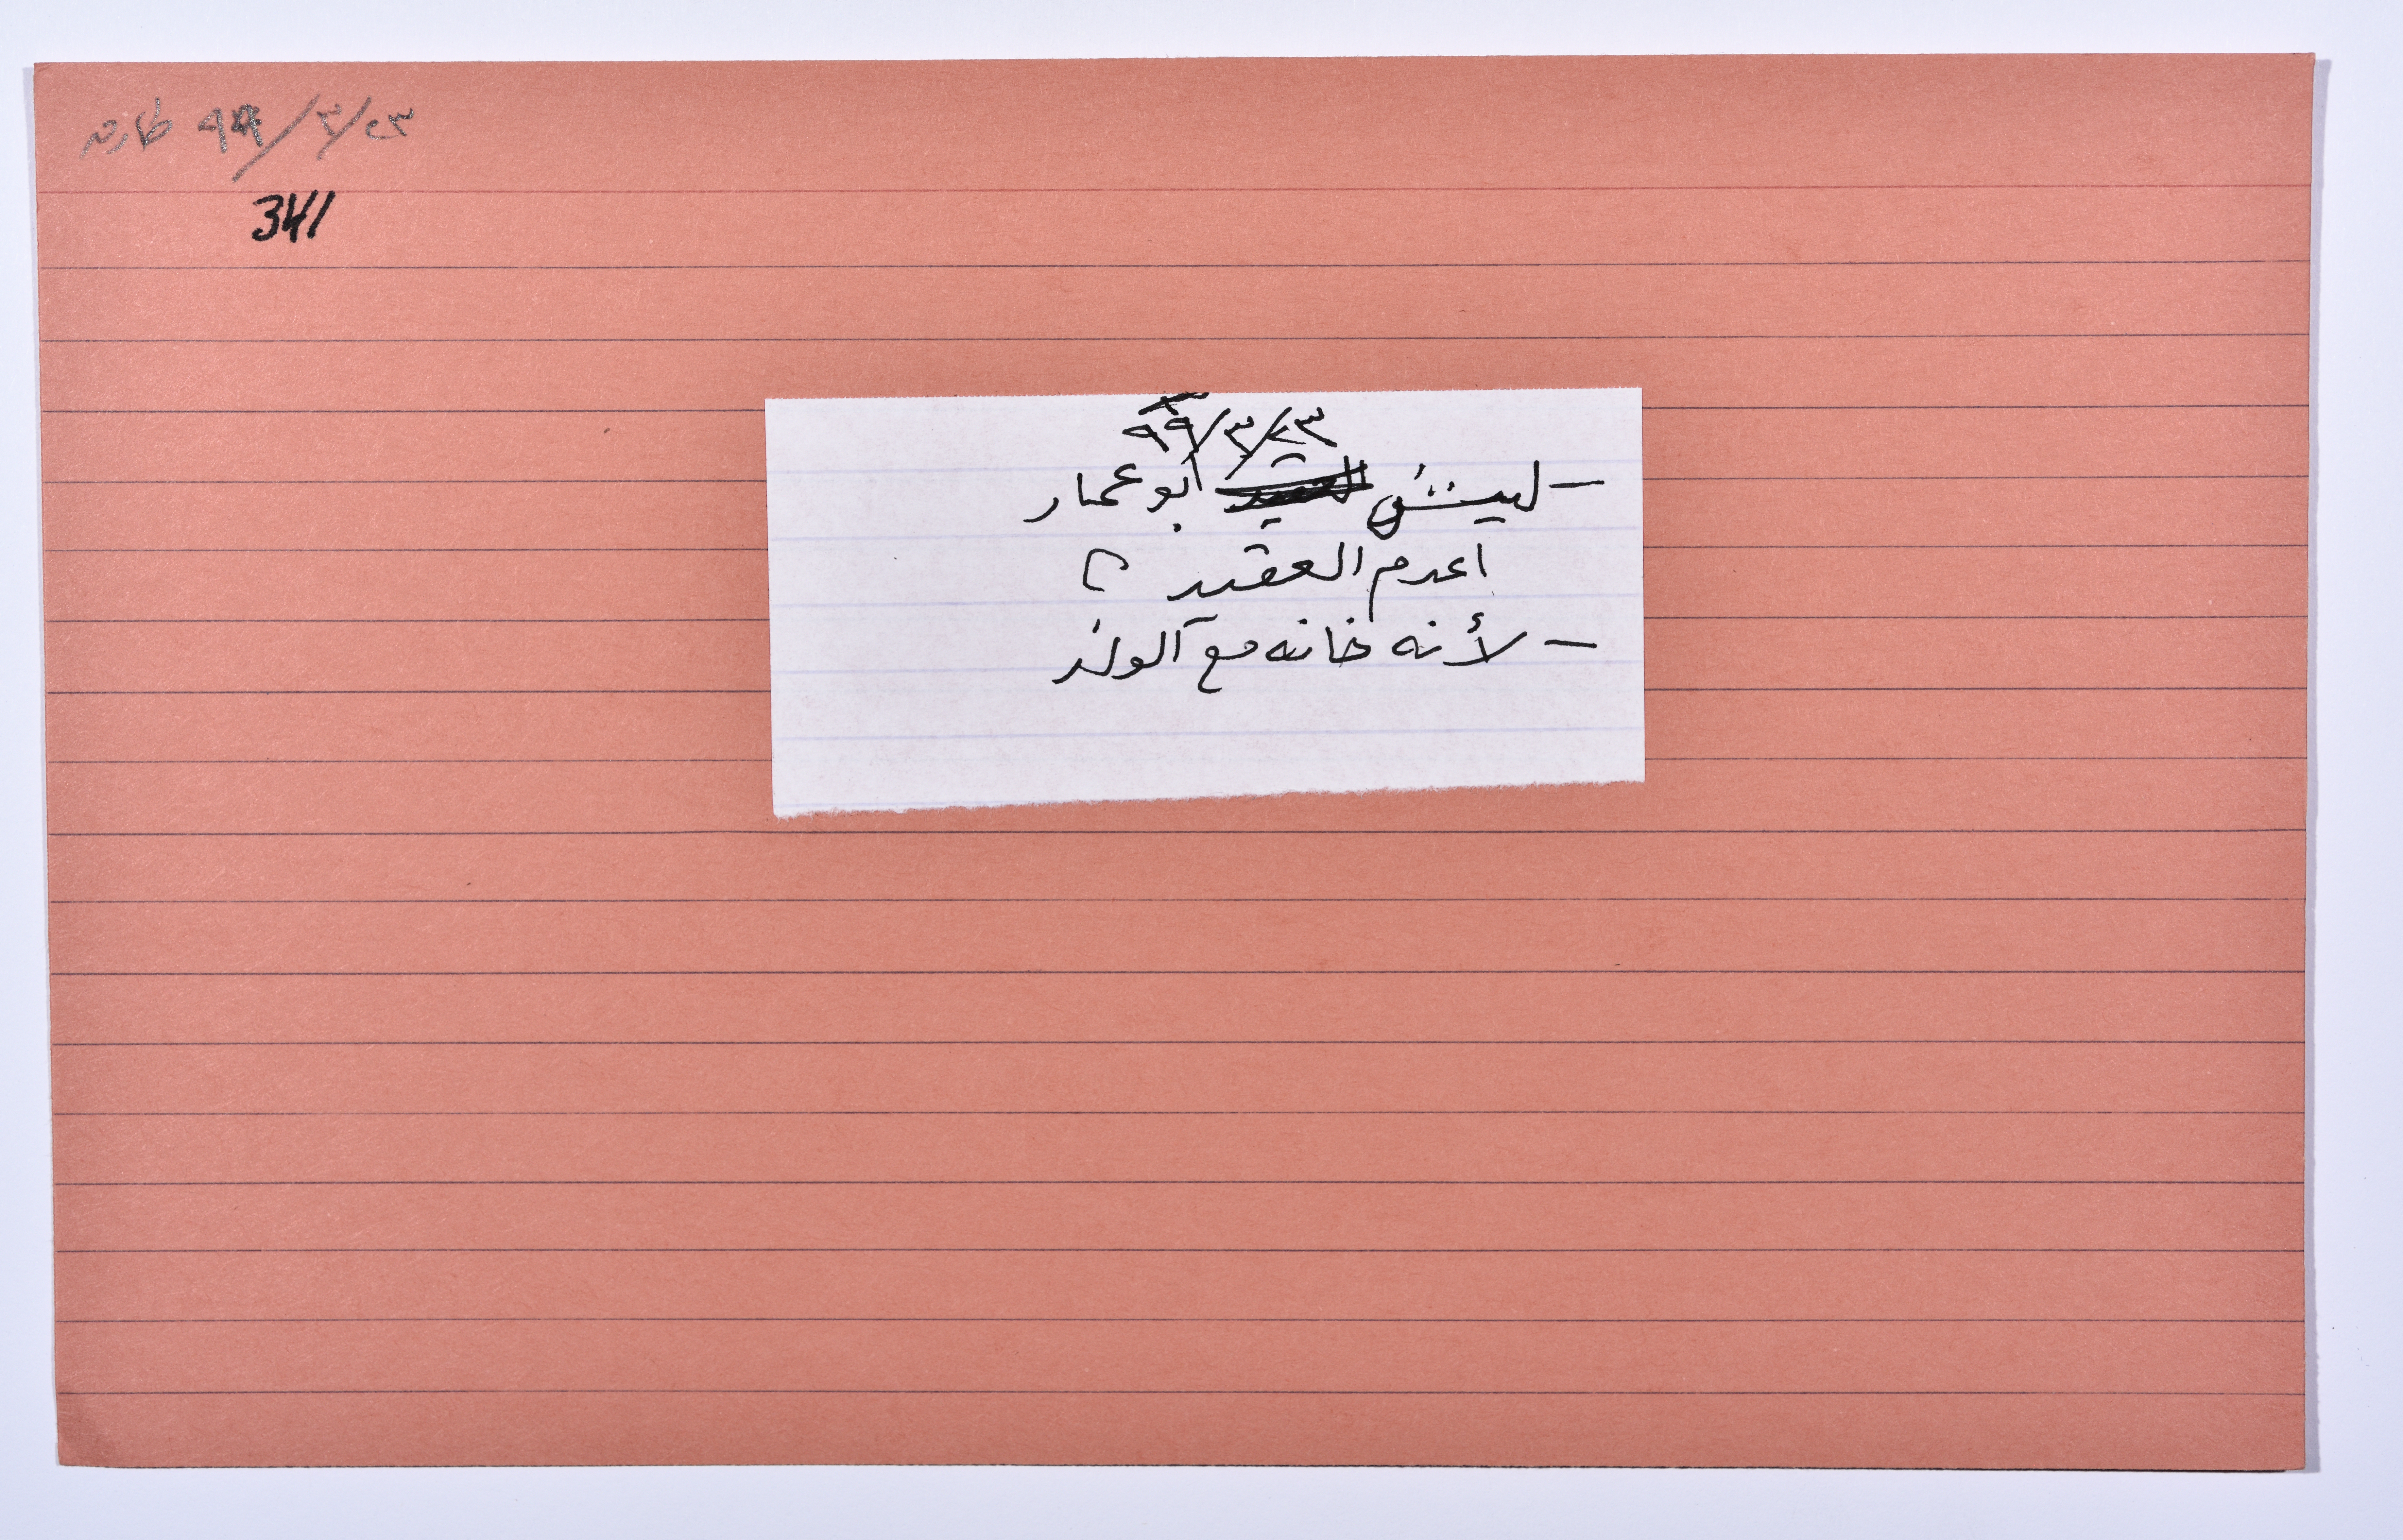 ٩٩/٣/٢٣
341
٩٩/٣/٢٣
- ليش العقيد أبو عمار
اعدم العقيد ؟
- لأنه خانه مع الوفد